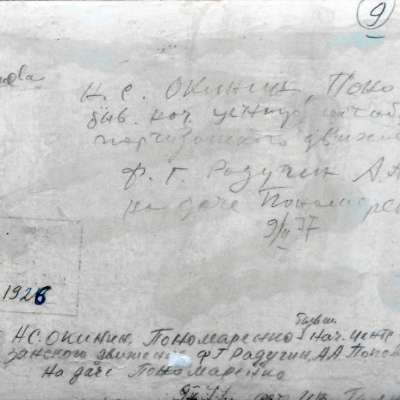 9
Н.С. Окинин, Поно
быв. нач. центр. штаба
партизанского движе
Ф.Г. Радугин А.А
на даче Пономарен
9/II 57
1926
бывш.
Н.С. Окинин, Пономаренко нач. центр
занского движения Ф Г Радугин, А.А. Попов
На даче Пономаренко